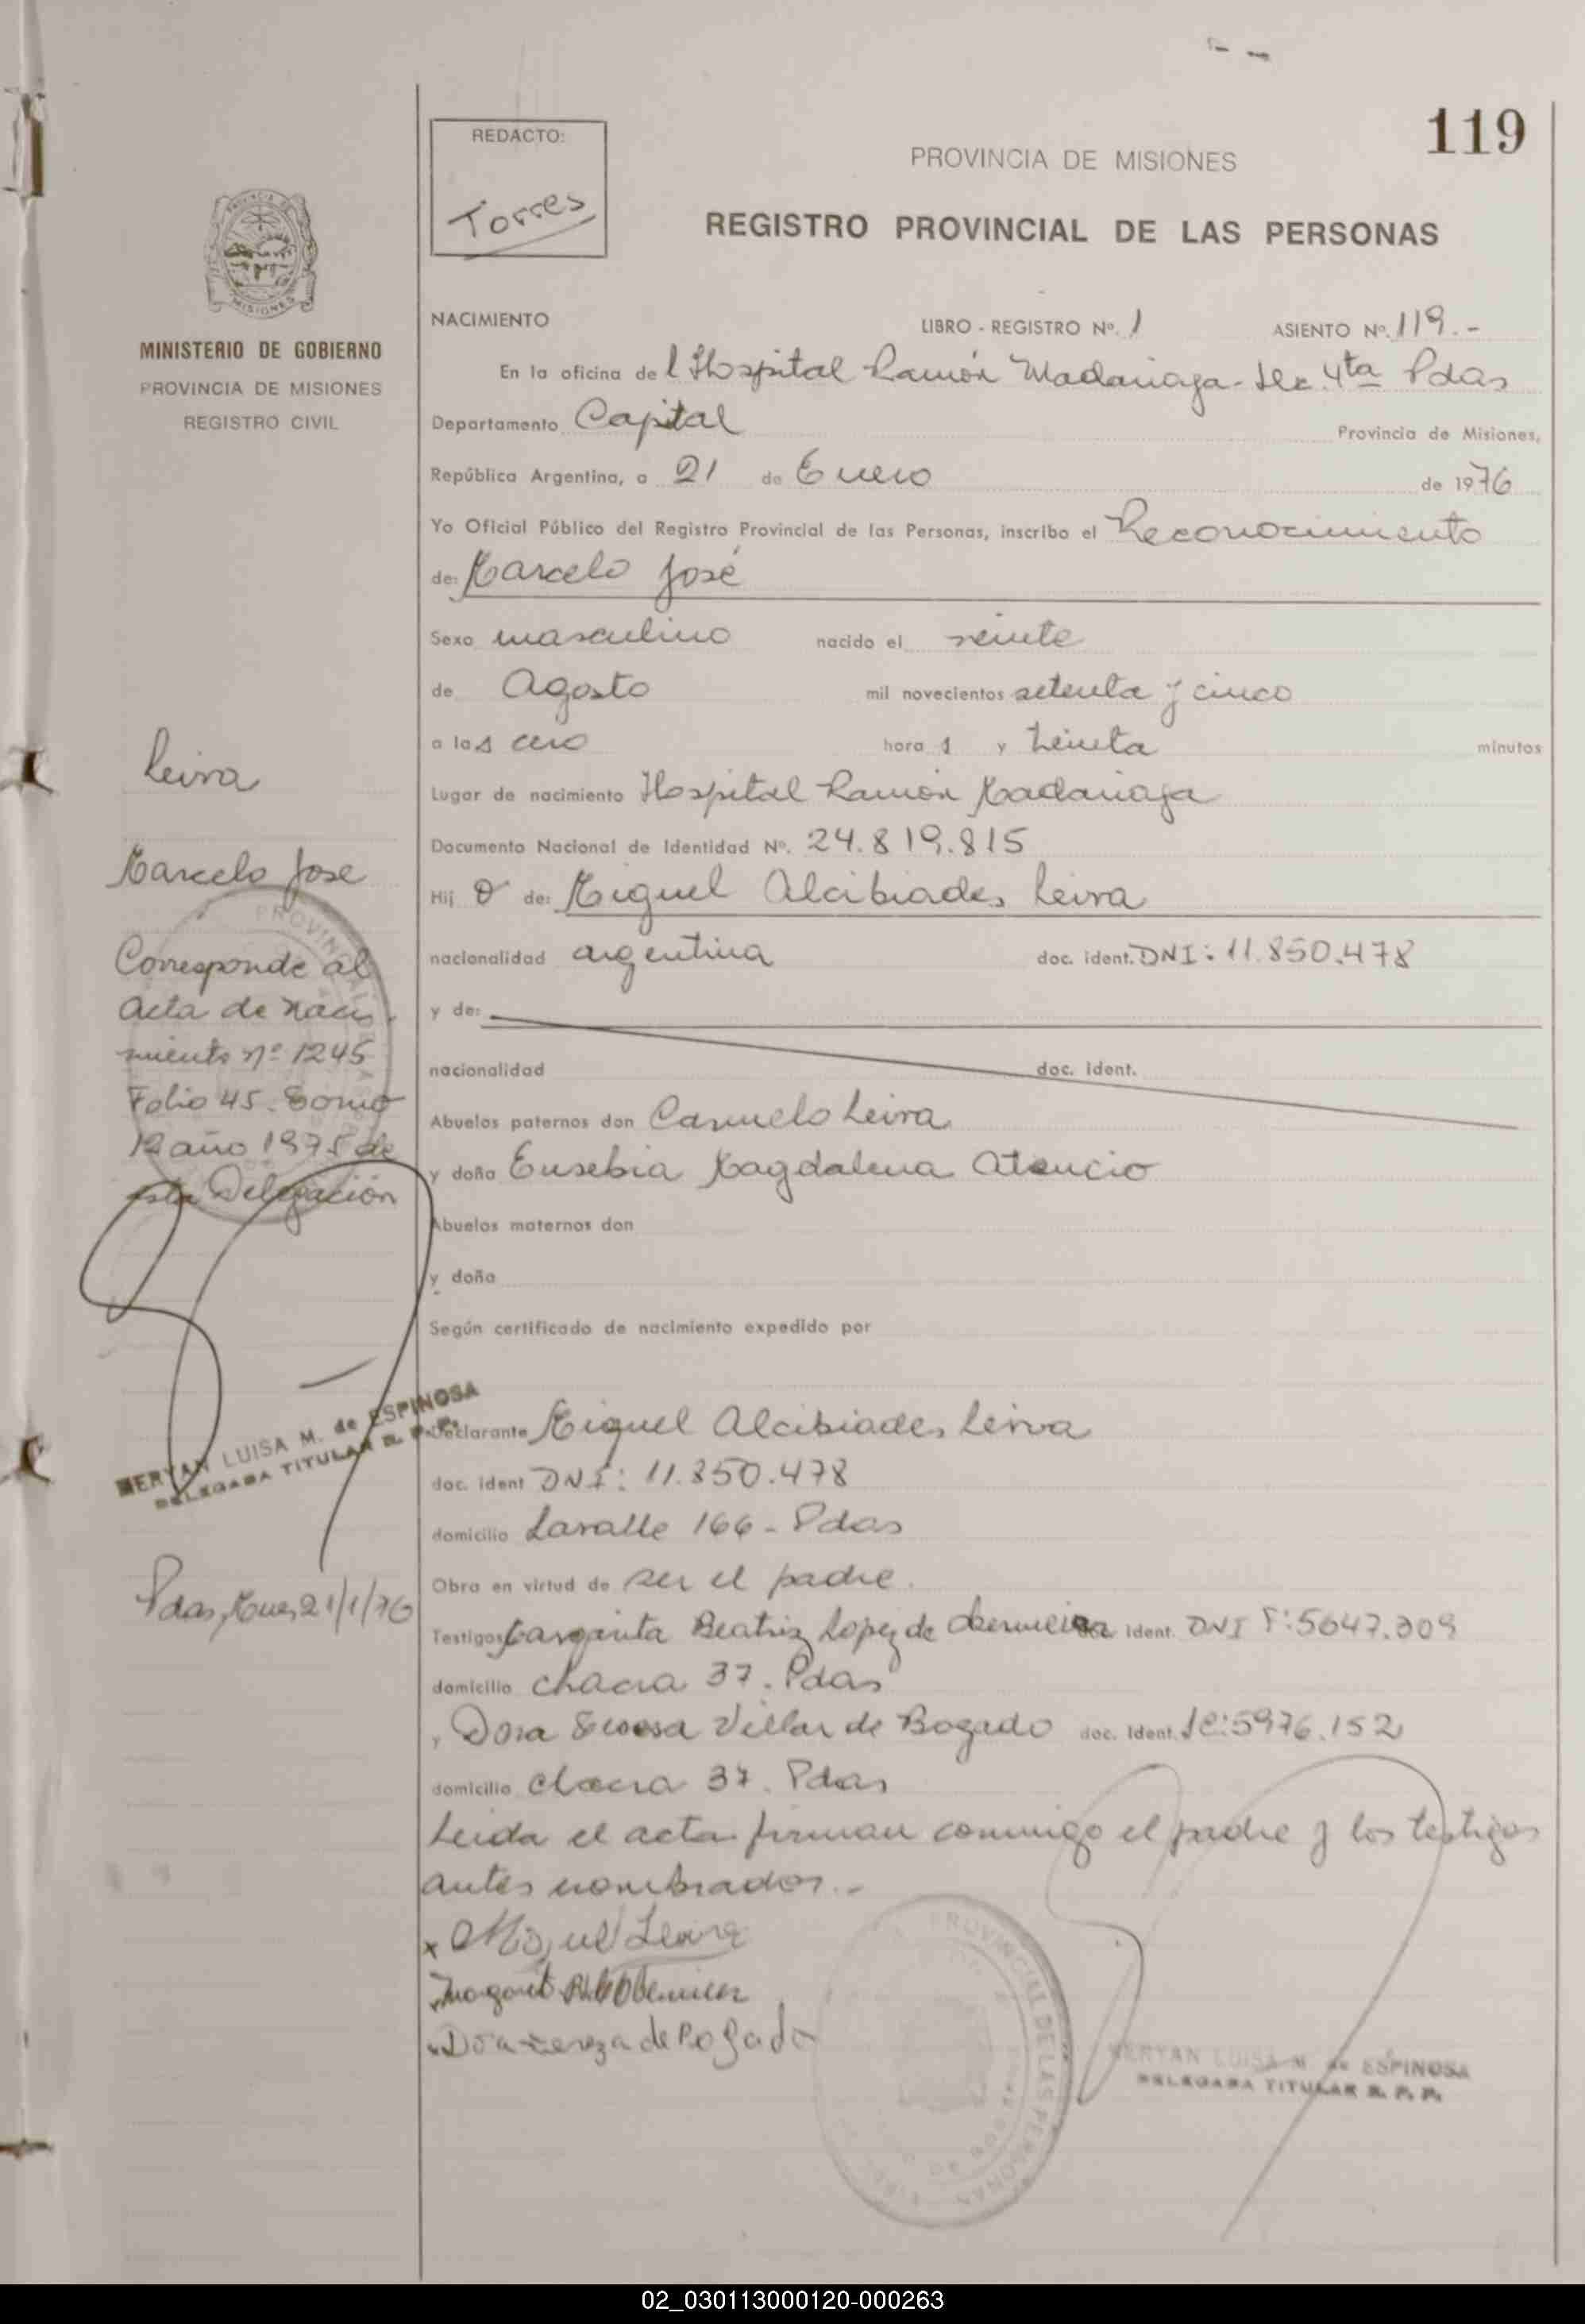 119
REDACTO:
Torres
PROVINCIA DE MISIONES
REGISTRO PROVINCIAL DE LAS PERSONAS
MISIONES
MINISTERIO DE GOBIERNO
PROVINCIA DE MISIONES
REGISTRO CIVIL
NACIMIENTO LIBRO - REGISTRO Nº. 1 ASIENTO Nº. 119.-
En la oficina de l Hospital Ramón Madariaga - Sec 4ta Pdas
Departamento Capital Provincia de Misiones,
República Argentina, a 21 de Enero de 1976
Yo Oficial Público del Registro Provincial de las Personas, inscribo el Reconocimiento
de: Marcelo José
Sexo masculino nacido el veinte
de Agosto mil novecientos setenta y cinco
a las cero hora s y treinta minutos
Lugar de nacimiento Hospital Ramón Madariaga
Documento Nacional de Identidad Nº. 24.819.815
Hij o de: Miguel Alcibiades Leiva
nacionalidad argentina doc. ident. DNI: 11.850.478
y de:
nacionalidad doc. ident.
Abuelos paternos don Carmelo Leiva
y doña Eusebia Magdalena Atencio
Abuelos maternos don
y doña
Según certificado de nacimiento expedido por
Declarante Miguel Alcibiades Leiva
doc. ident DNI: 11.850.478
domicilio Lavalle 166 - Pdas
Obra en virtud de ser el padre.
Testigos Margarita Beatriz Lopez de ident. DNI F: 5647.309
domicilio chacra 37. Pdas
y Dora Villar de Bogado doc. ident. LC: 5976.152
domicilio chacra 37. Pdas
Leida el acta firman conmigo el padre y los testigos
antes nombrados.-
x Miguel Leiva
Dora de Bogado
PROVINCIAL DE LAS PERSONAS
MERYAN LUISA M. de ESPINOSA
DELEGADA TITULAR R. P. P.
Leiva
Marcelo Jose
Corresponde al
acta de naci
miento nº 1245
Folio 45. Tomo
12 año 1975 de
esta Delegación
MERYAN LUISA M. de ESPINOSA
DELEGADA TITULAR R. P. P.
Pdas, Mnes, 21/1/76
02_030113000120-000263